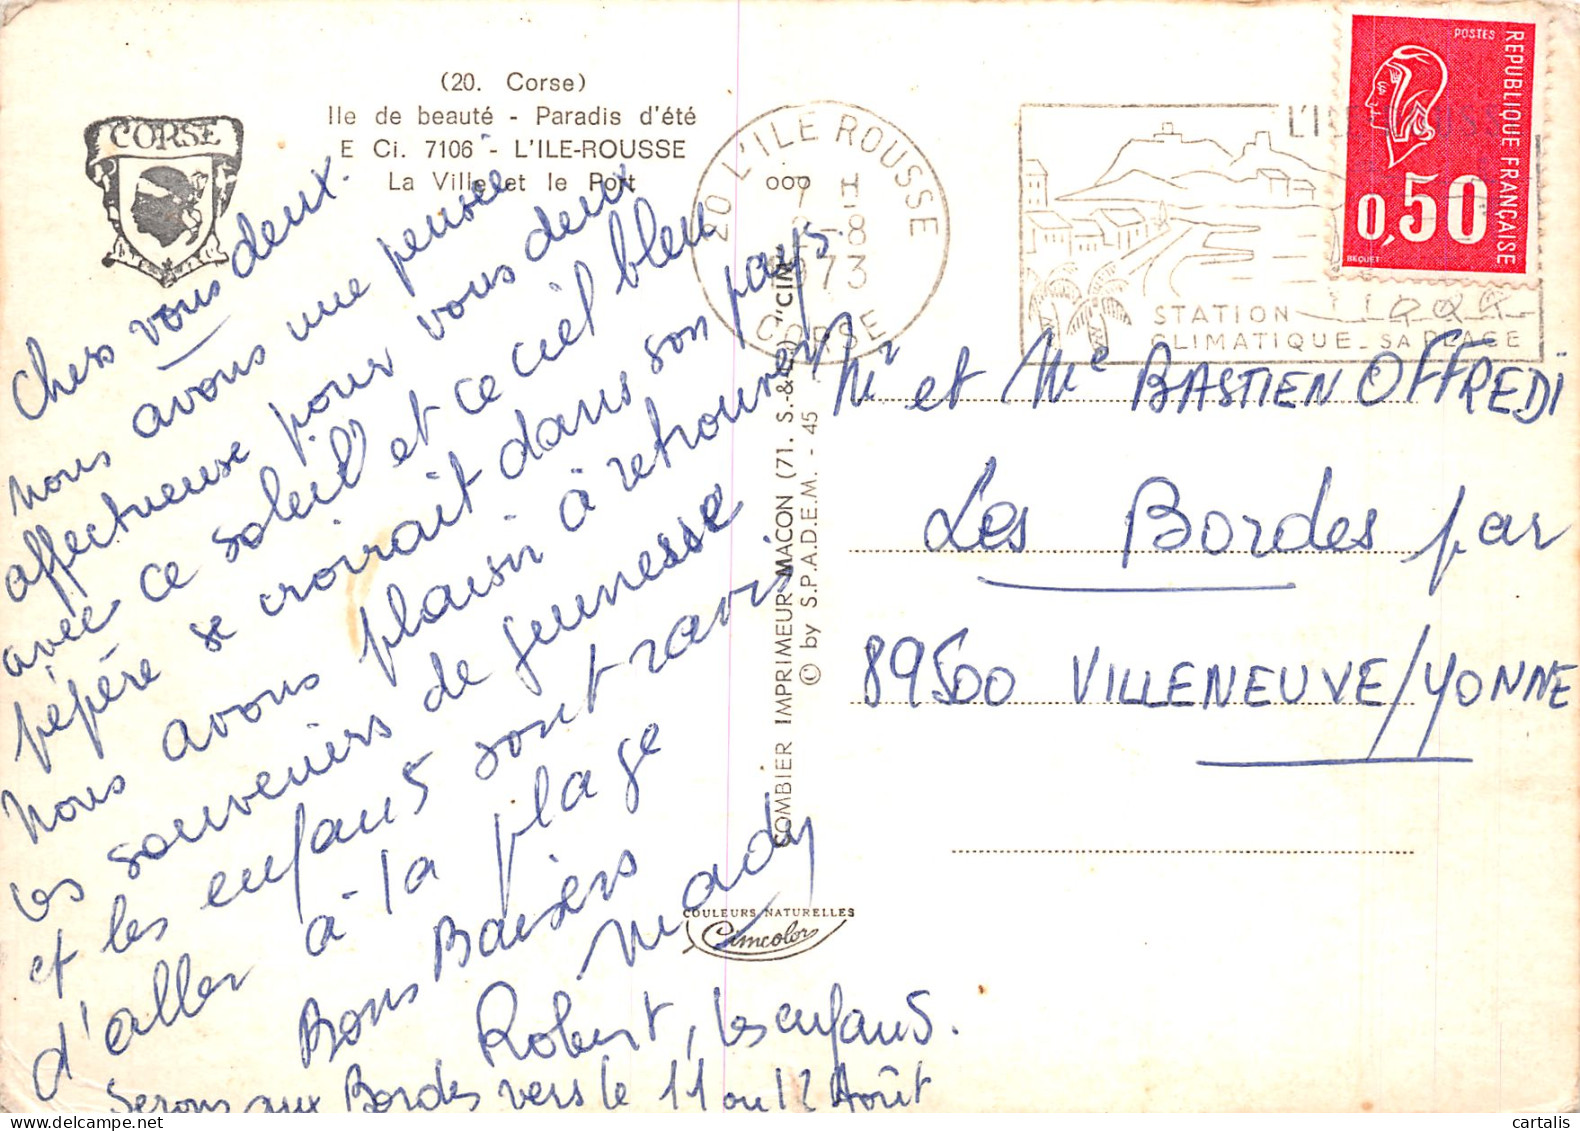 (20. Corse)
Ile de beauté - Paradis d'été
E Ci. 7106 - L'ILE-ROUSSE
La Ville et le Port
CORSE
Chers vous deux.
nous avons une pensée
affectueuse pour vous deux
avec ce soleil et ce ciel bleu
pépère se croirait dans son pays.
Nous avons plaisir à retrouver
les souvenirs de jeunesse
et les enfants sont ravis
d'aller à la plage
Bons Baisers
Mady
Robert, les enfants.
Serons aux Bordes vers le 11 ou 12 Août
COULEURS NATURELLES
Cimcolor
COMBIER IMPRIMEUR MACON (71. S.-&-L.) "CIM"
© by S.P.A.D.E.M. - 45
20 L'ILE ROUSSE
7 H
-8
1973
CORSE
STATION
CLIMATIQUE_SA PLAGE
POSTES
REPUBLIQUE FRANÇAISE
0,50
BEQUET
Mr et Me BASTIEN OFFREDI
Les Bordes par
89500 VILLENEUVE/YONNE
cartalis